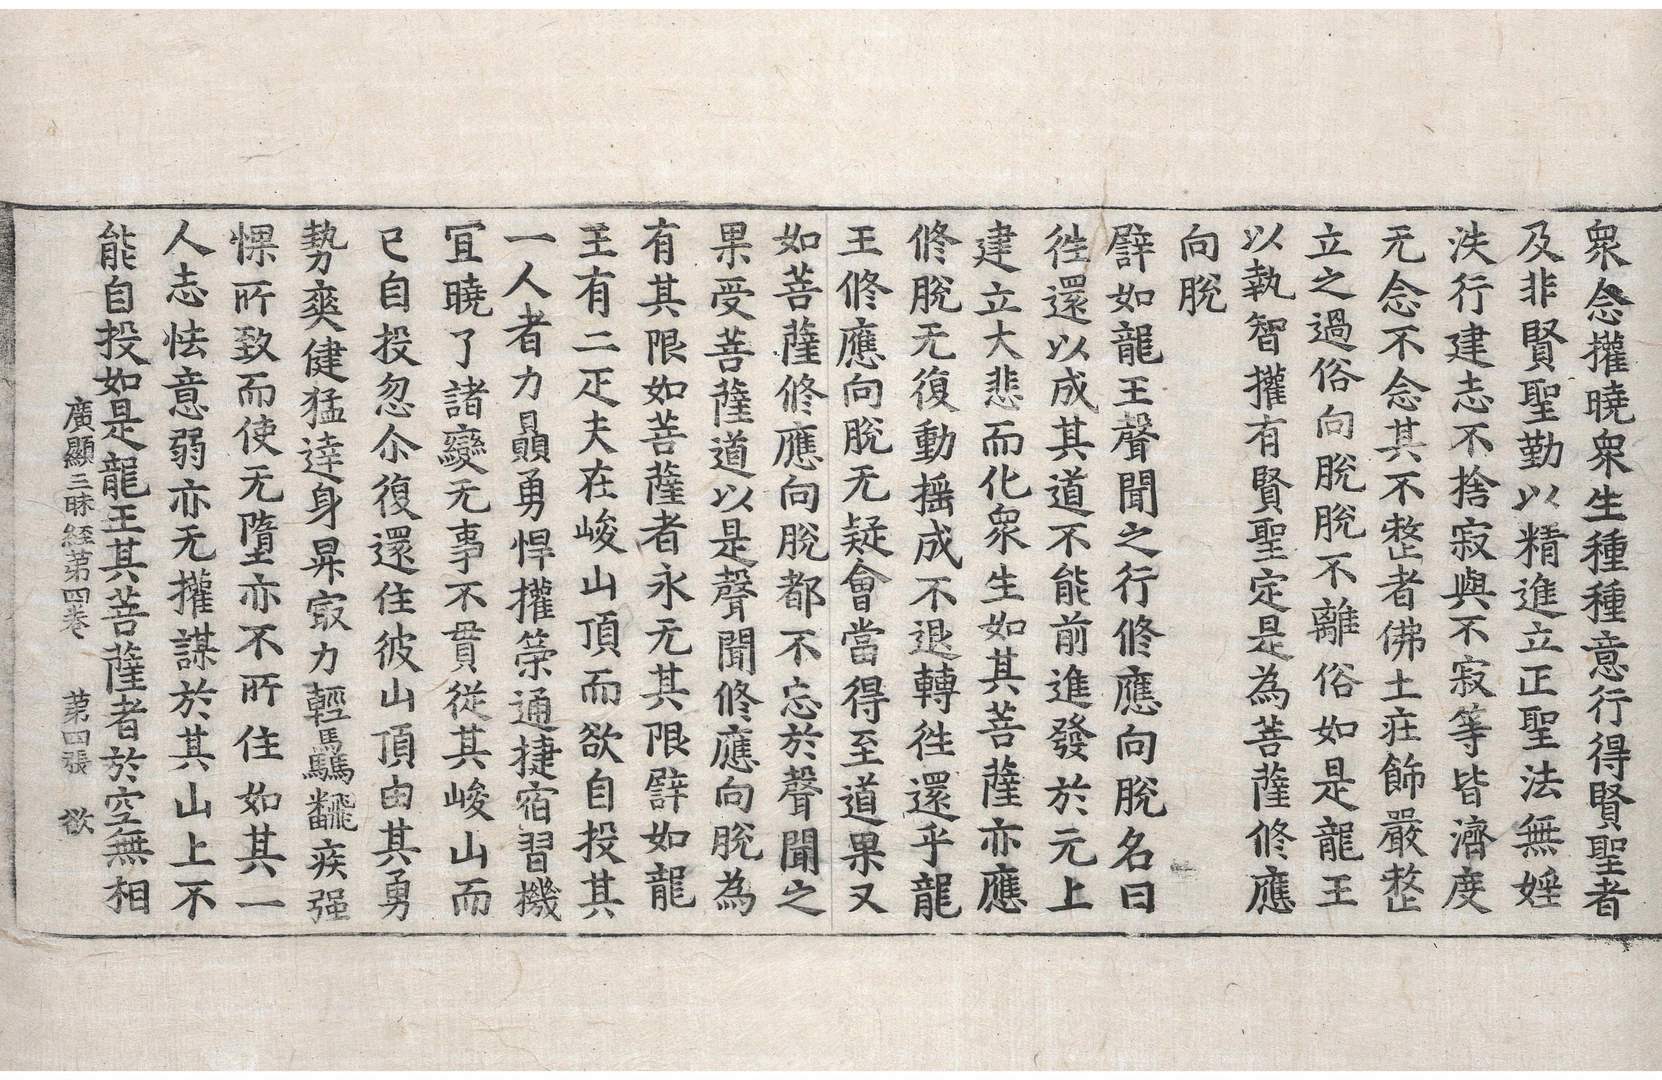 衆念攉曉衆生種種意行得賢聖者
及非賢聖勤以精進立正聖法無婬
泆行建志不捨寂與不寂等皆濟度
无念不念其不整者佛土莊飾嚴整
立之過俗向脫脫不離俗如是龍王
以執智攉有賢聖定是為菩薩修應
向脫
譬如龍王聲聞之行修應向脫名曰
徃還以成其道不能前進發於元上
建立大悲而化衆生如其菩薩亦應
修脫无復動搖成不退轉徃還乎龍
王修應向脫无疑會當得至道果又
如菩薩修應向脫都不忘於聲聞之
果受菩薩道以是聲聞修應向脫為
有其限如菩薩者永无其限譬如龍
王有二疋夫在峻山頂而欲自投其
一人者力贔勇悍攉筞通捷宿習機
冝曉了諸變无事不貫從其峻山而
已自投忽尒復還住彼山頂由其勇
勢爽健猛達身昇㝡力輕驫飜疾强
慄所致而使无墮亦不所住如其一
人志怯意弱亦无攉謀於其山上不
能自投如是龍王其菩薩者於空無相
廣顯三昧経第四卷 苐四張 欲